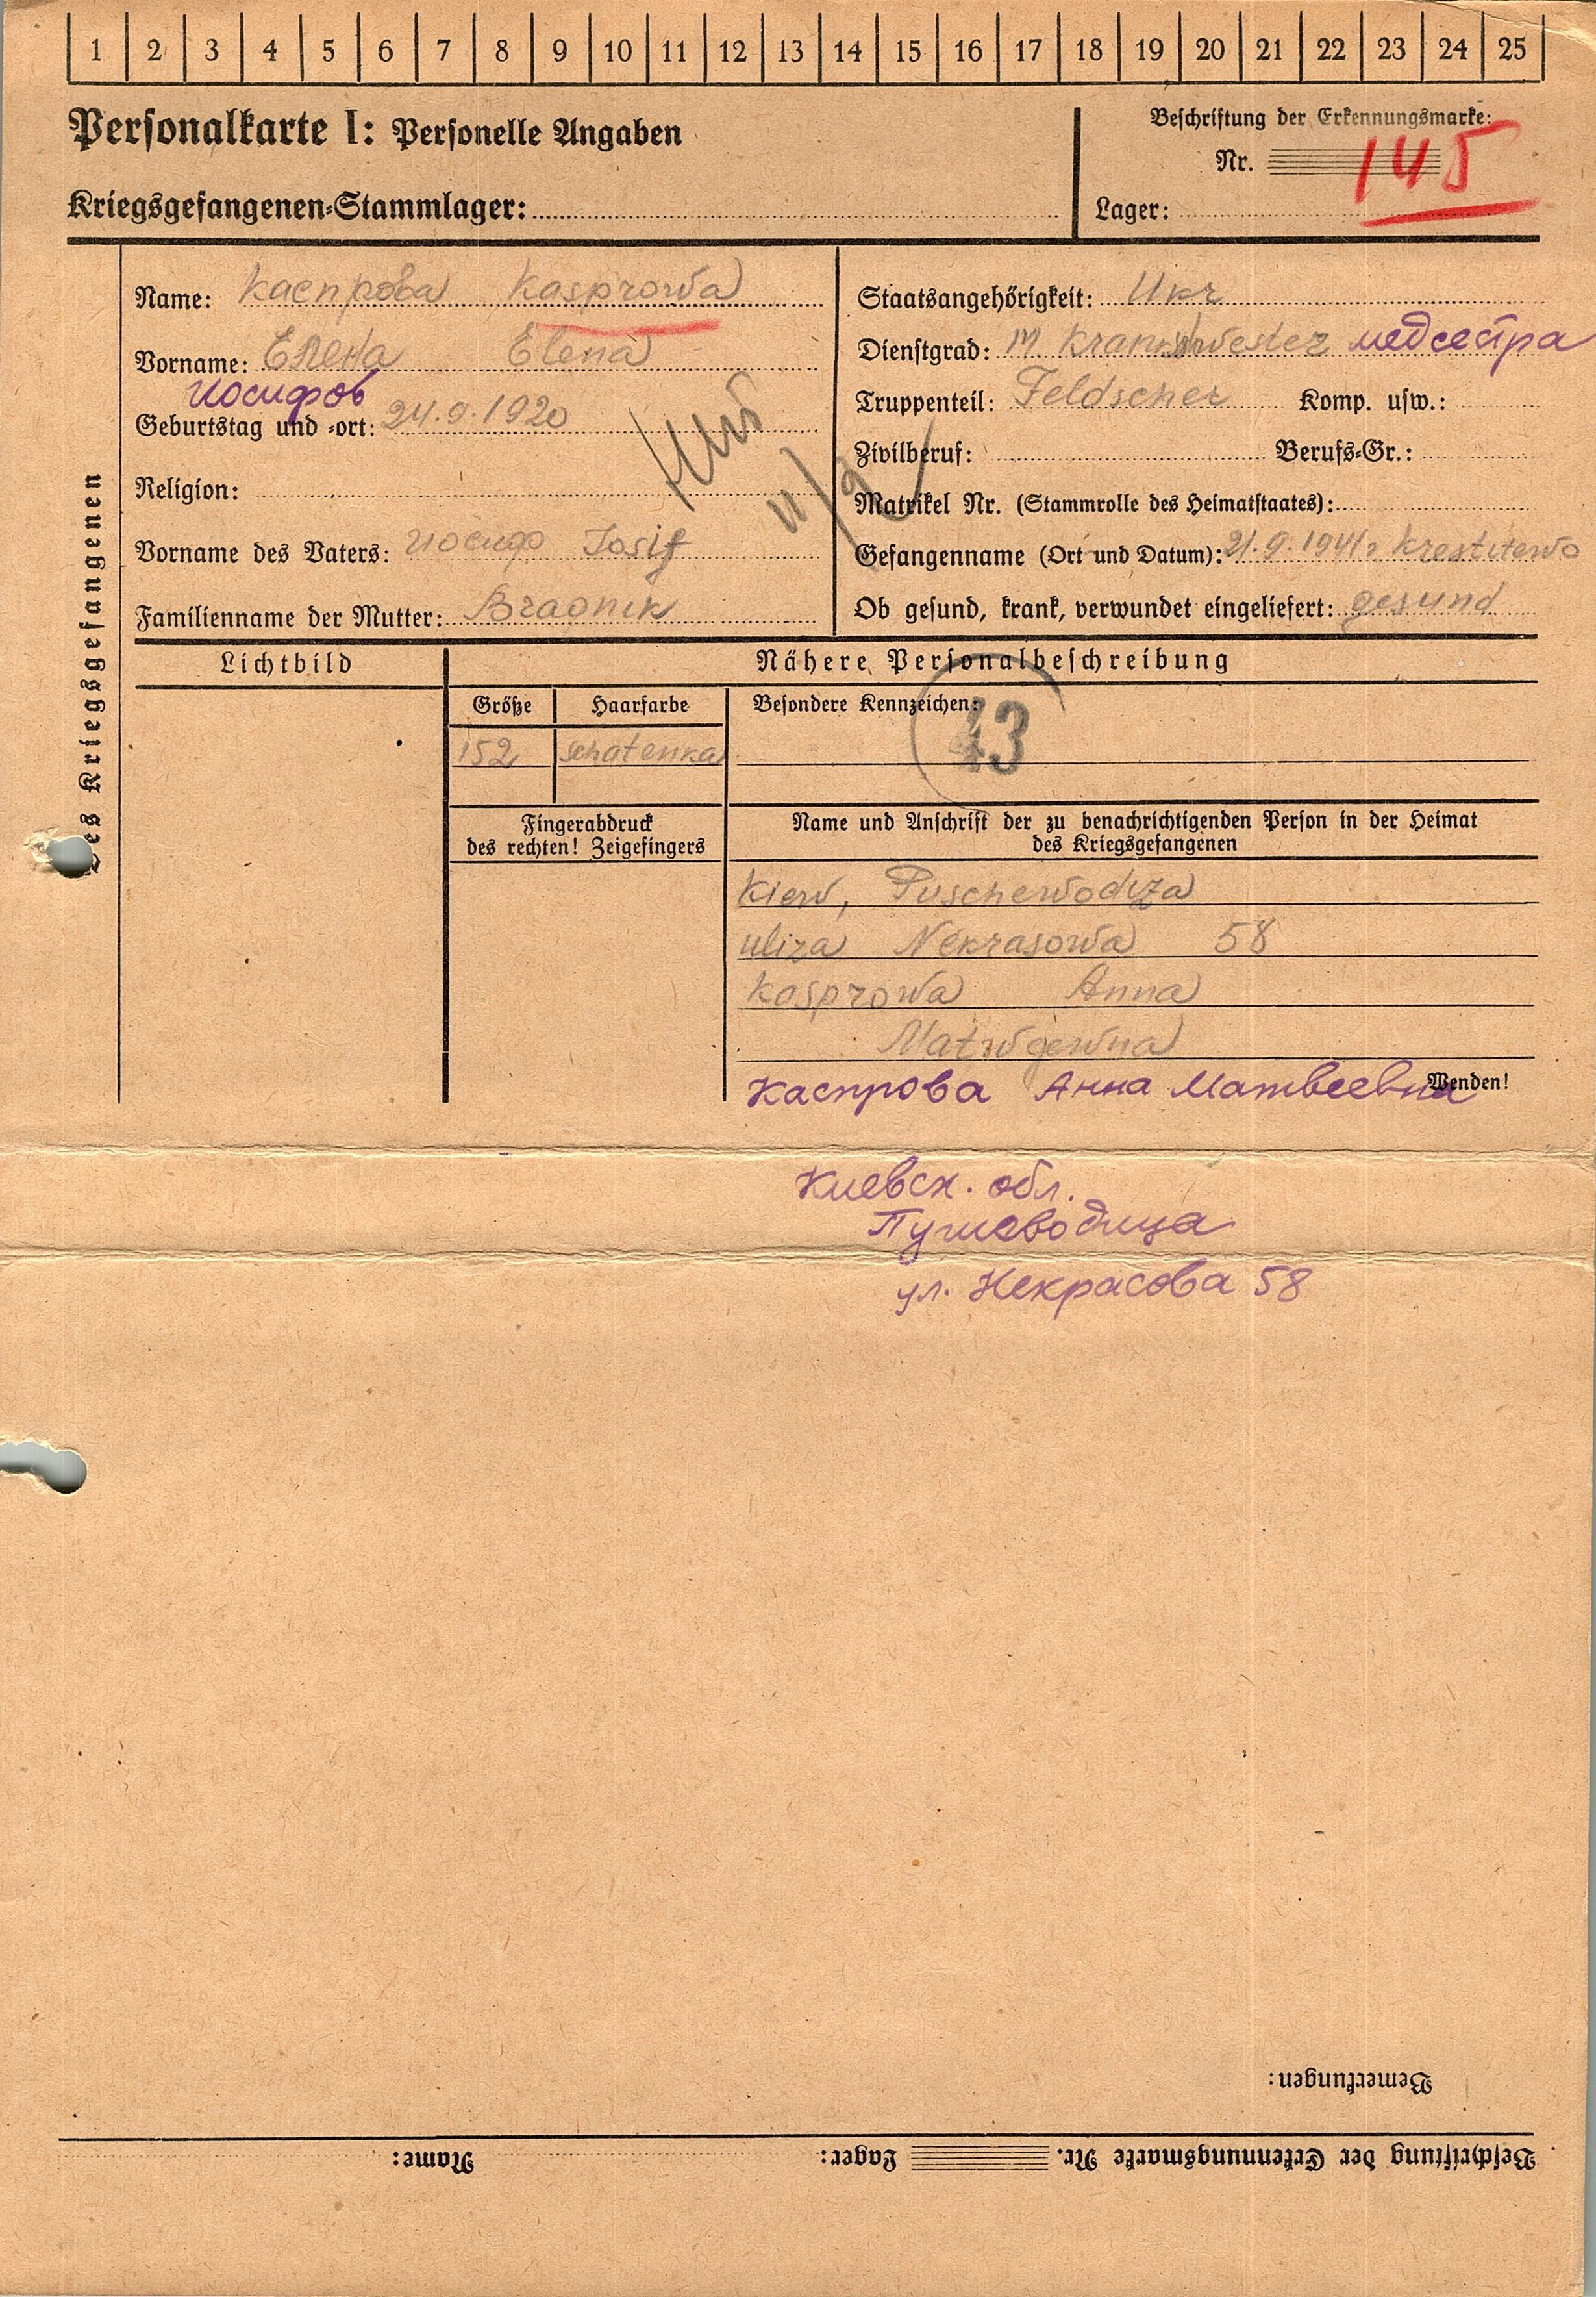 1 2 3 4 5 6 7 8 9 10 11 12 13 14 15 16 17 18 19 20 21 22 23 24 25
Personalkarte I: Personelle Angaben
Beschriftung der Erkennungsmarke:
Nr. 145
Kriegsgefangenen-Stammlager:
Lager:
des Kriegsgefangenen
Name: Каспрова Kasprowa
Vorname: Елена Elena
Иосифов
Geburtstag und -ort: 24.9.1920
Religion:
Vorname des Vaters: Иосиф Iosif
Familienname der Mutter:
Staatsangehörigkeit: Ukr
Dienstgrad: медсестра
Truppenteil: Feldscher Komp. usw.:
Zivilberuf: Berufs-Gr.:
Matrikel Nr. (Stammrolle des Heimatstaates):
Gefangenname (Ort und Datum): 21.9.1941
Ob gesund, krank, verwundet eingeliefert: gesund
Lichtbild
Nähere Personalbeschreibung
Größe Haarfarbe Besondere Kennzeichen:
152 schatenka
43
Fingerabdruck
des rechten! Zeigefingers
Name und Anschrift der zu benachrichtigenden Person in der Heimat
des Kriegsgefangenen
Kiew, Puschewodiza
uliza Nekrasowa 58
Kasprowa Anna
Matwgewna
Каспрова Анна Матвеевна
Wenden!
Киевск. обл.
Пушеводица
ул. Некрасова 58
Bemerkungen:
Beschriftung der Erkennungsmarke Nr. Lager: Name: